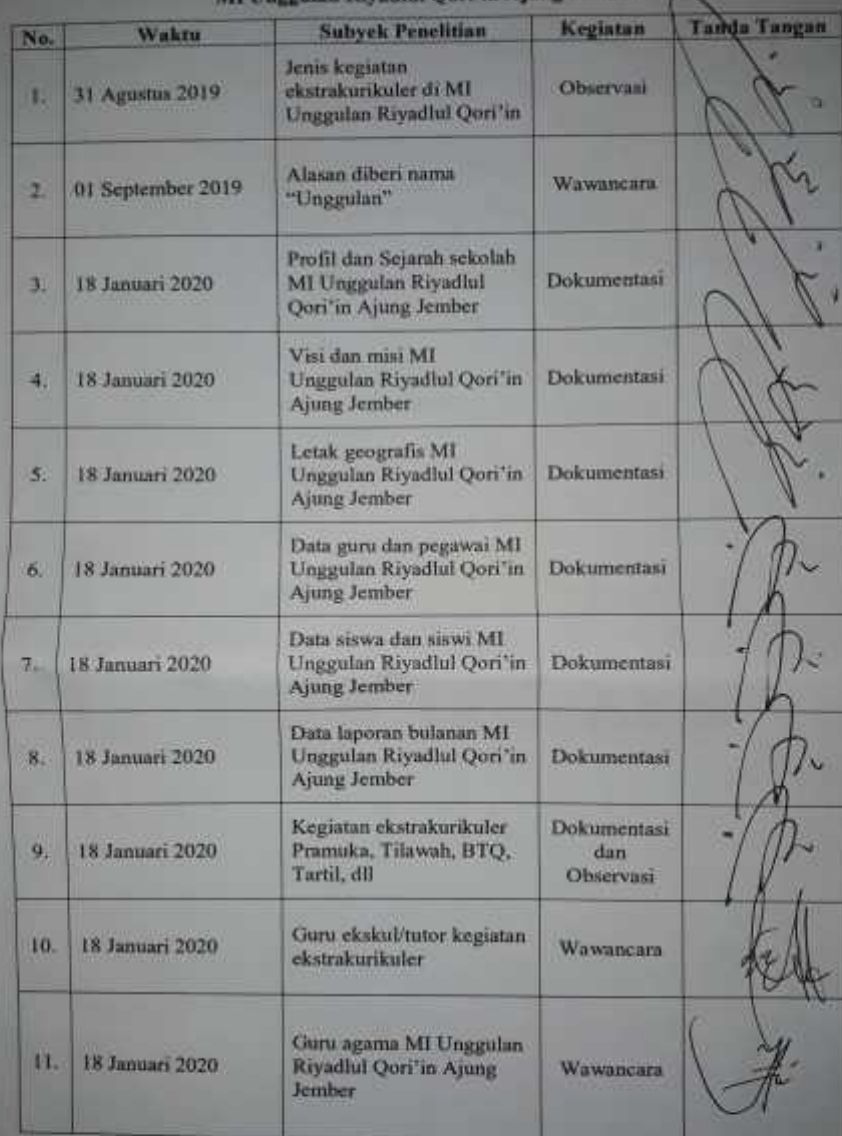 MI Unggulan Riyadlul Qori'in Ajung
No. Waktu Subyek Penelitian Kegiatan Tanda Tangan
1. 31 Agustus 2019 Jenis kegiatan
ekstrakurikuler di MI
Unggulan Riyadlul Qori'in Observasi
2. 01 September 2019 Alasan diberi nama
"Unggulan" Wawancara
3. 18 Januari 2020 Profil dan Sejarah sekolah
MI Unggulan Riyadlul
Qori'in Ajung Jember Dokumentasi
4. 18 Januari 2020 Visi dan misi MI
Unggulan Riyadlul Qori'in
Ajung Jember Dokumentasi
5. 18 Januari 2020 Letak geografis MI
Unggulan Riyadlul Qori'in
Ajung Jember Dokumentasi
6. 18 Januari 2020 Data guru dan pegawai MI
Unggulan Riyadlul Qori'in
Ajung Jember Dokumentasi
7. 18 Januari 2020 Data siswa dan siswi MI
Unggulan Riyadlul Qori'in
Ajung Jember Dokumentasi
8. 18 Januari 2020 Data laporan bulanan MI
Unggulan Riyadlul Qori'in
Ajung Jember Dokumentasi
9. 18 Januari 2020 Kegiatan ekstrakurikuler
Pramuka, Tilawah, BTQ,
Tartil, dll Dokumentasi
dan
Observasi
10. 18 Januari 2020 Guru ekskul/tutor kegiatan
ekstrakurikuler Wawancara
11. 18 Januari 2020 Guru agama MI Unggulan
Riyadlul Qori'in Ajung
Jember Wawancara